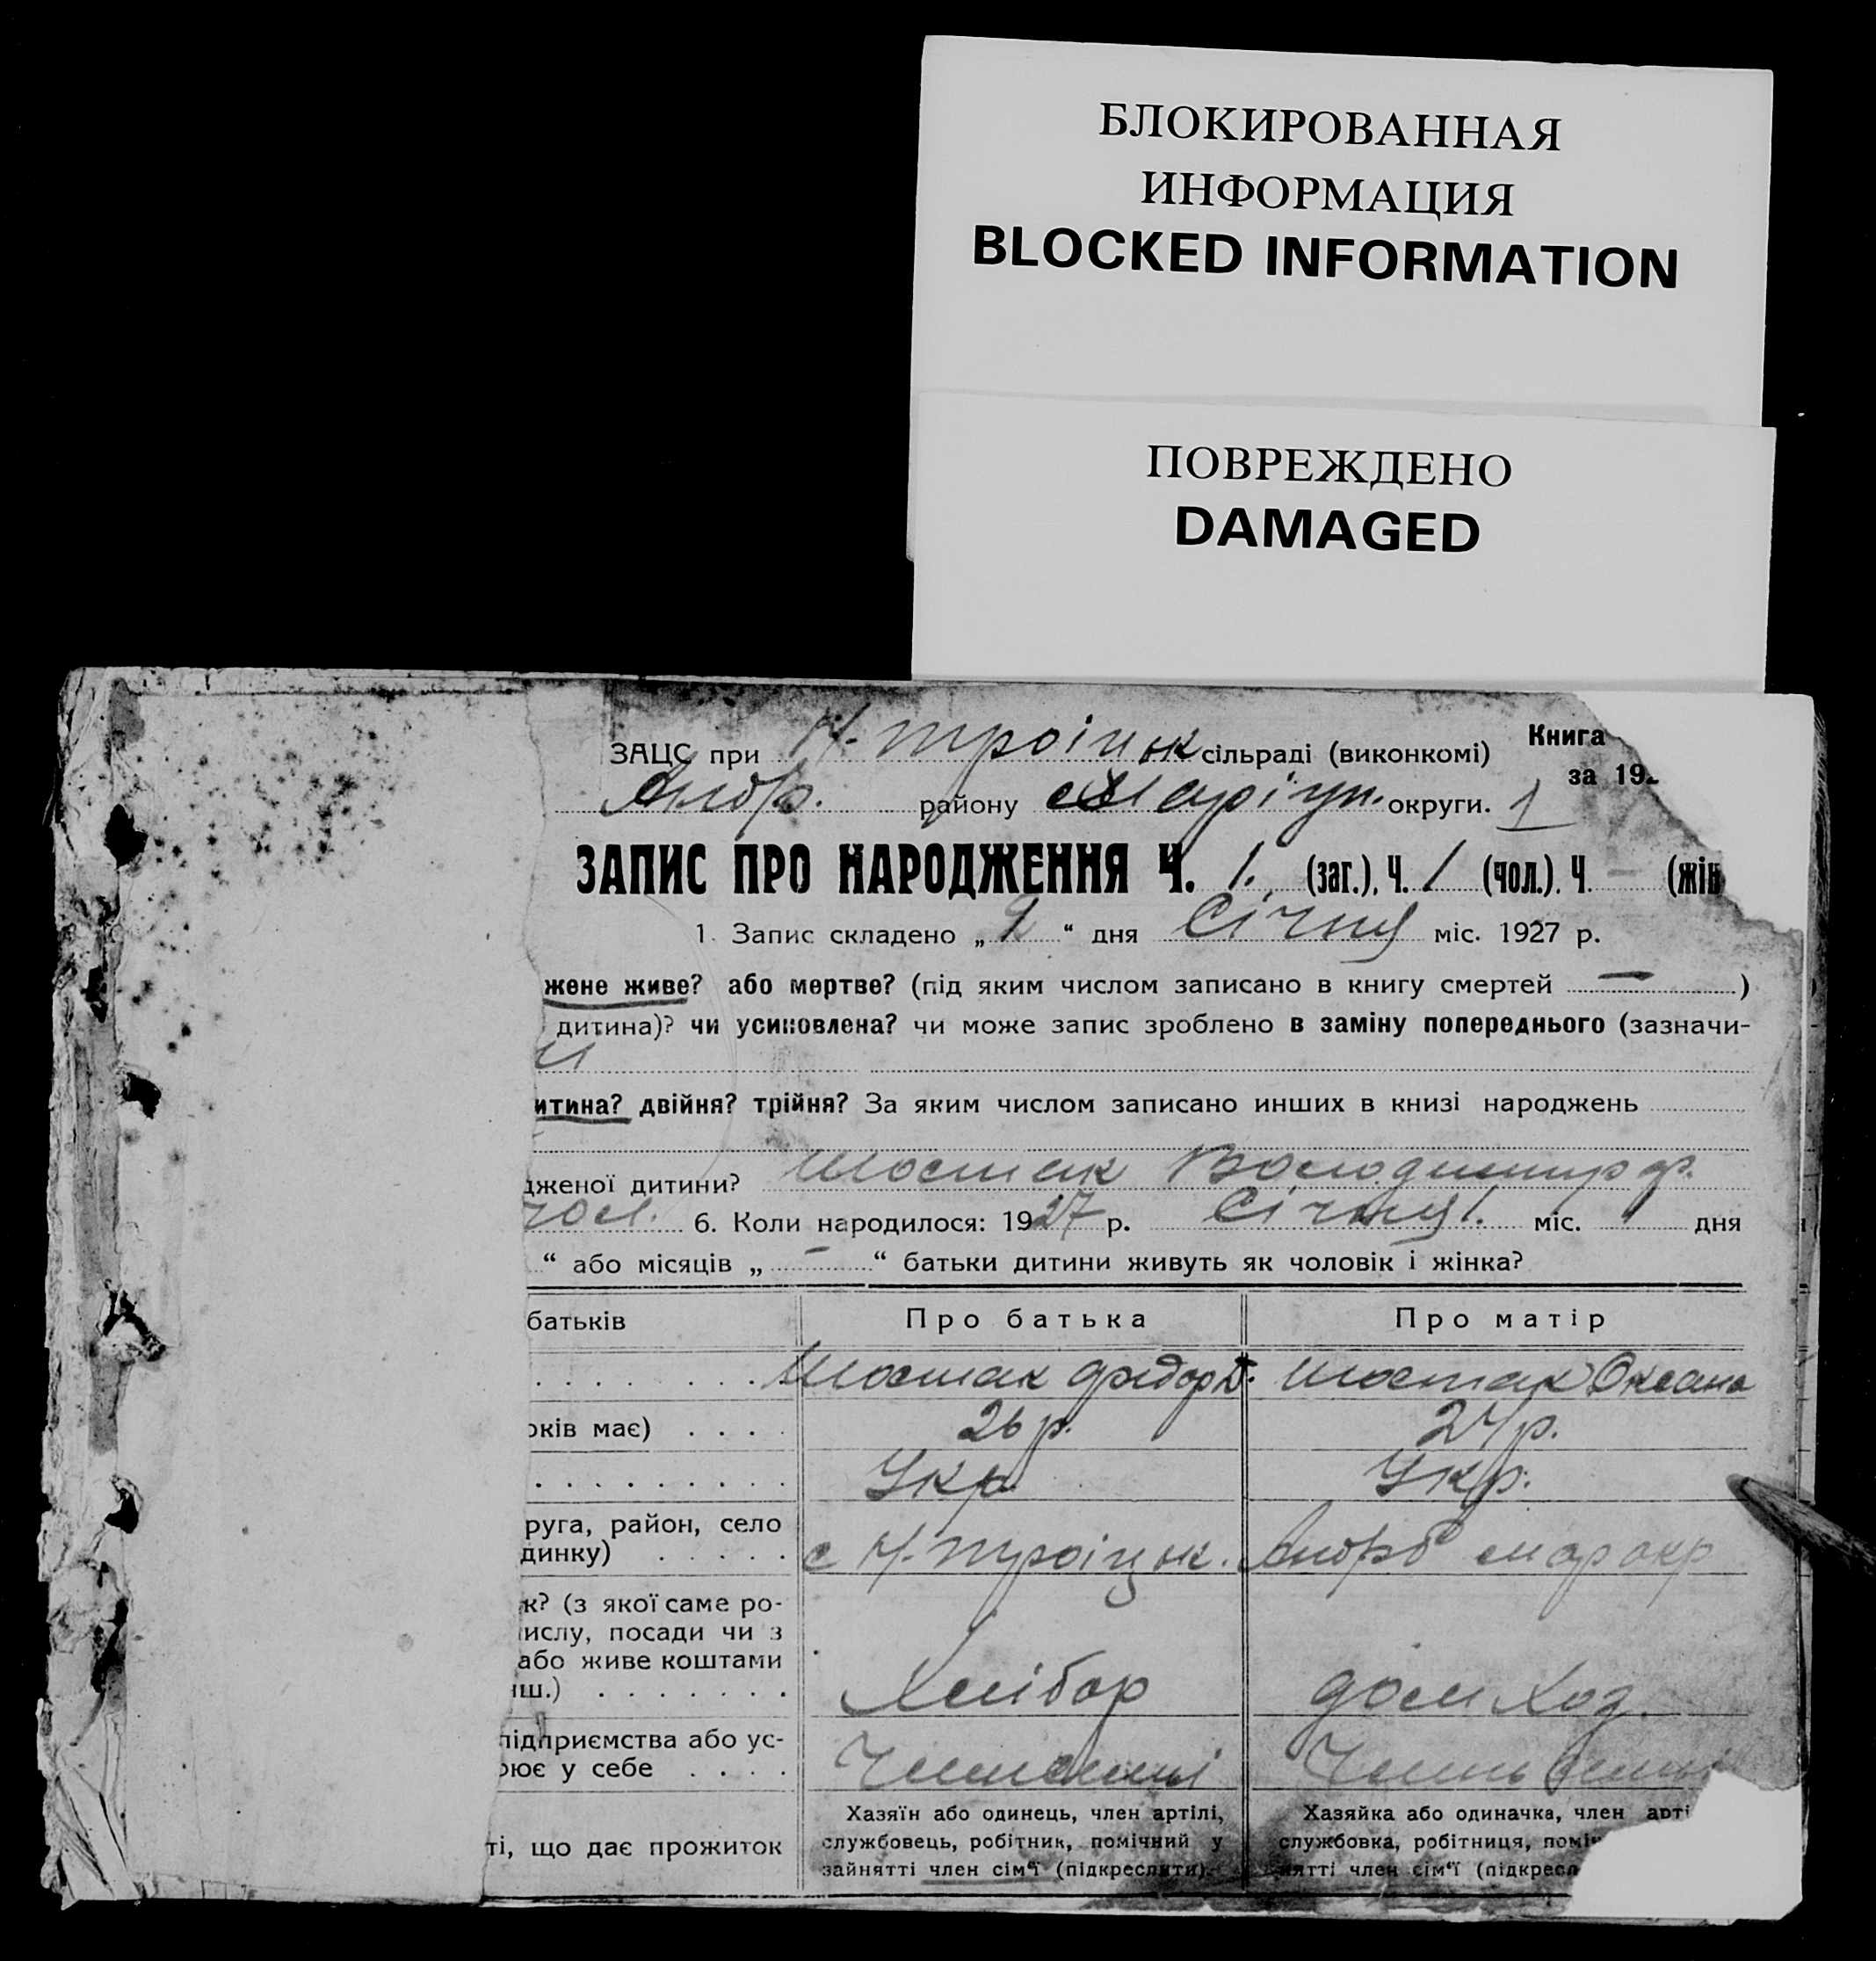 БЛОКИРОВАННАЯ
ИНФОРМАЦИЯ
BLOCKED INFORMATION
ПОВРЕЖДЕНО
DAMAGED
Книга
за 192
ЗАЦС при Н-троіцьк сільраді (виконкомі)
району Маріуп. округи. 1
ЗАПИС ПРО НАРОДЖЕННЯ Ч. 1. (заг.), Ч. 1 (чол.). Ч. – (жін
1. Запис складено „ “ дня Січня міс. 1927 р.
жене живе? або мертве? (під яким числом записано в книгу смертей — )
дитина)? чи усиновлена? чи може запис зроблено в заміну попереднього (зазначи-
итина? двійня? трійня? За яким числом записано инших в книзі народжень
дженої дитини? Шостак Володимир Ф.
чол. 6. Коли народилося: 1927 р. Січня 1. міс. дня
“ або місяців „ – “ батьки дитини живуть як чоловік і жінка?
батьків Про батька Про матір
Шостак Федор Д. Шостак Оксана
оків має) 26 р. 24 р.
Укр. Укр.
руга, район, село
динку) с Н-троіцьк. мар окр
к? (з якої саме ро-
ислу, посади чи з
або живе коштами
нш.) Хлібор дом хоз.
підприємства або ус-
рює у себе
Хазяїн або одинець, член артілі, Хазяйка або одиначка, член арті
ті, що дає прожиток службовець, робітник, помічний у службовка, робітниця, поміч
зайнятті член сім'ї (підкреслити). нятті член сім'ї (підкресл